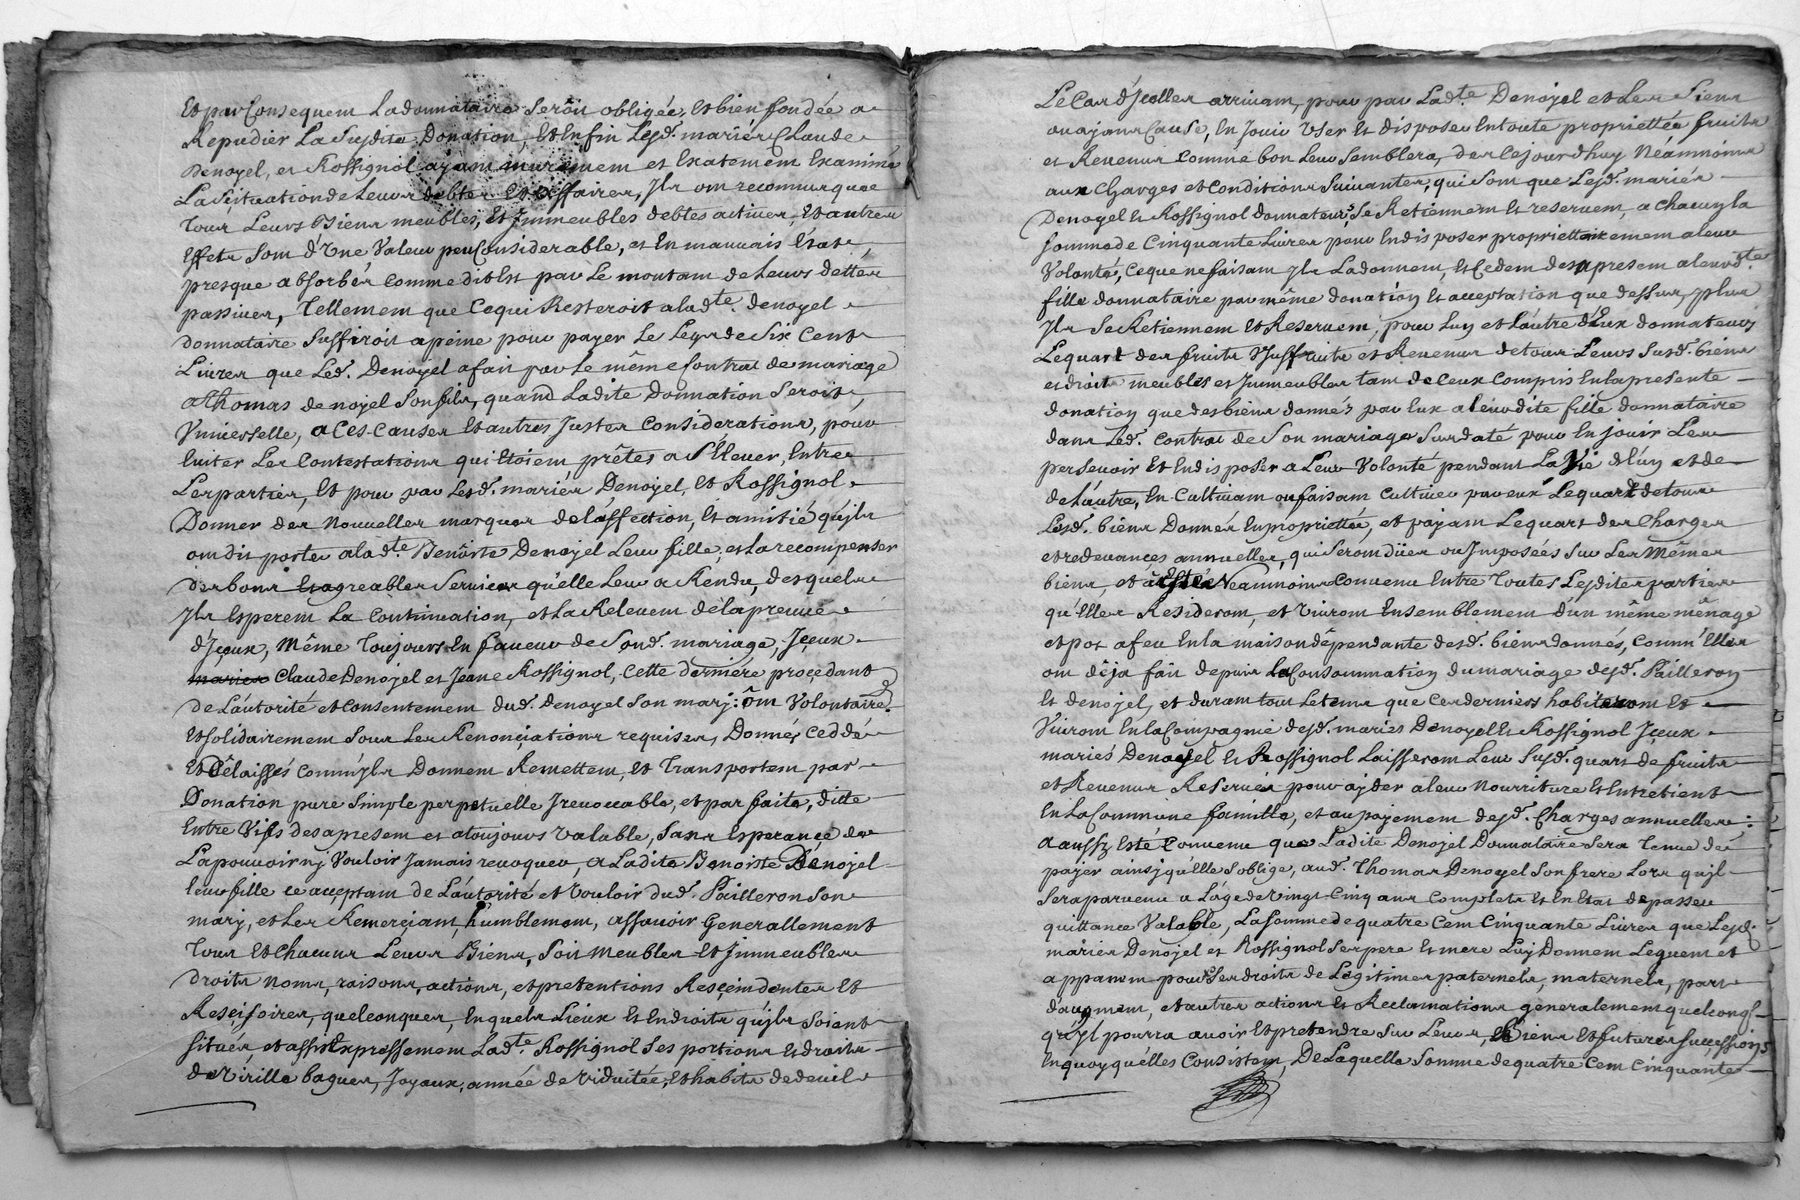 Et par Consequem Ladonnataire Seroit obligée, Et bien fondée a
Repudier La Susdite Donation, Et Enfin Lesd. mariér Claude
Denoyel, et Rossignol ayam murement et Exatement Examiné
La Situation de Leurs debter Et affairer, Jls om reconnu que
Tous Leurs Biens meubles, Et Jmmeubles debtes activer, Et autres
Effets som d'Vne Valeur peu Considerable, et En mauvais Etat,
presque absorbés comme dit Est par Le montam de Leurs detter
passiver, Tellemem que Cequi Resteroit alad.te denoyel
donnataire Suffiroit apeine pour payer Le Legs de Six Cents
Livres que Led. Denoyel a fait par Le même Contrat de mariage
a Thomas denoyel Son fils, quand Ladite Donnation Seroit
Vniverselle, a Ces Causes Et autres Justes Considerations, pour
Eviter Les Contestations qui Etoiem prêtes a S'Elever, Entre
Les parties, Et pour par Lesd. mariés Denoyel, Et Rossignol
Donner des Nouvelles marques de L'affection, Et amitié qu'jls
om dit porter alad.te Benôiste Denoyel Leur fille, et La recompenser
des bons Et agreables Services qu'elle Leur a Rendu, desquels
Jls Esperem La Continuation, et La Relevem de La preuve
d'Jçeux, Même Toujours En faveur de Sond. mariage, Jçeux
mariés Claude Denoyel et Jeane Rossignol, Cette derniére proçedant
De L'autorité et consentement dud. denoyel Son mary: om Volontaire.
Et solidairemem Sous Les Renonçiations requises, Donné, Ceddé
Et Délaissés comm'jls Donnem Remettem, Et Transportem par
Donation pure Simple perpetuelle Jrevocable, et parfaite, ditte
Entre Vifs desapresem et atoujours Valable, Sans Esperance de
La pouvoir ny Vouloir Jamais revoquer, a Ladite Benoiste Dénoyel
leur fille ce acçeptam de L'autorité et Vouloir dud. Pailleron Son
mary, et Les Remerçiam, humblemem, assavoir Generallement
Tous Et Chacuns Leurs Biens, Soit Meubles Et Jmmeubles
droits noms, raisons, actions, et pretentions Resçeindentes Et
Resçisoires, quelconques, En quels Lieux Et Endroits qu'jls Soient
situés, et assis Expressemem Lad.te Rossignol Ses portions Et droits
de Virille bagues, Joyaux, année de Viduitée, Et habits de deuil
Le Cas d'Jcelles arrivam, pour par Lad.te Denoyel et Les Siens
ou ayans Cause, En Jouir Vser Et disposer En toute propriettée fruits
et Revenus comme bon Leur Semblera, des Ce jourd'huy Néamnóins
aux charges et Conditions Suivantes, qui Som que Lesd. mariés
Denoyel Et Rossignol Donnateurs, Se Retiennem Et reservem, a chacun la
somme de Cinquante Livres pour En disposer propriettairemem a leur
Volonté, Ceque ne faisam Jls La donnem, Et Cedem desapresem a leurd.te
fille donnataire par même donation Et acceptation que dessus, plus
Jls Se Retiennem Et Reservem, pour Luy et L'autre d'Eux donnateurs
Lequart des fruits Vsuffruits et Revenus de tous Leurs Susd. biens
et droits meubles et Jmmeubles tam de Ceux compris En la presente
donation que des biens donnés par Eux a leurdite fille donnataire
dans Led. Contrat de Son mariage Susdaté pour En jouir Les
persevoir Et Endisposer a Leur Volonté pendant La Vie d'L'un et de
de L'autre, En Cultivam ou faisam Cultiver par eux Lequart de tous
Lesd. biens Donnés En propriettée, et payam Lequart des Charges
et redevances annuelles, qui Serom düés ou Jmposées Sur Les Mêmes
biens, et à Esté Neamnoins convenu Entre Toutes Lesdites parties
qu'Elles Residerom, et Vivrom Ensemblemem d'un même ménage
et pot a feu En la maison dépendante desd. biens donnés, Comm'Elles
om déja fait depuis La Consommation du mariage desd. Pailleron
Et denoyel, et durant tout Le tems que Ces derniers habiterom Et
Vivrom En la Compagnie desd. mariés Denoyel Et Rossignol Jçeux
mariés Denoyel Et Rossignol Laisserom Leur Susd. quart de fruits
et Revenus Reservés pour ayder a leur Nourriture Et Entretient
En La Commune famille, et au payement desd. Charges annuelles:
a aussy Esté Convenu que Ladite Denoyel Donnataire Sera Tenue de
payer ainsy qu'Elle S'oblige, aud. Thomas Denoyel Son frere Lors qu'jl
Sera parvenu a L'âge de Vingt-Cinq ans Complets Et En Etat de passer
quittance Valable, La Somme de quatre Cem Cinquante Livres que Lesd.
mariés Denoyel et Rossignol Ses pere Et mere Luy Donnem Leguem et
appanem pour Ses droits de Legitimes paternels, maternels, part
d'augmem, et autres actions Et Reclamations generalement quelconq.
qu'Jl pourra avoir Et pretendre Sur Leurs, Biens Et futures Sucçessions
En quoy qu'elles Consistem, De Laquelle Somme de quatre Cem Cinquante